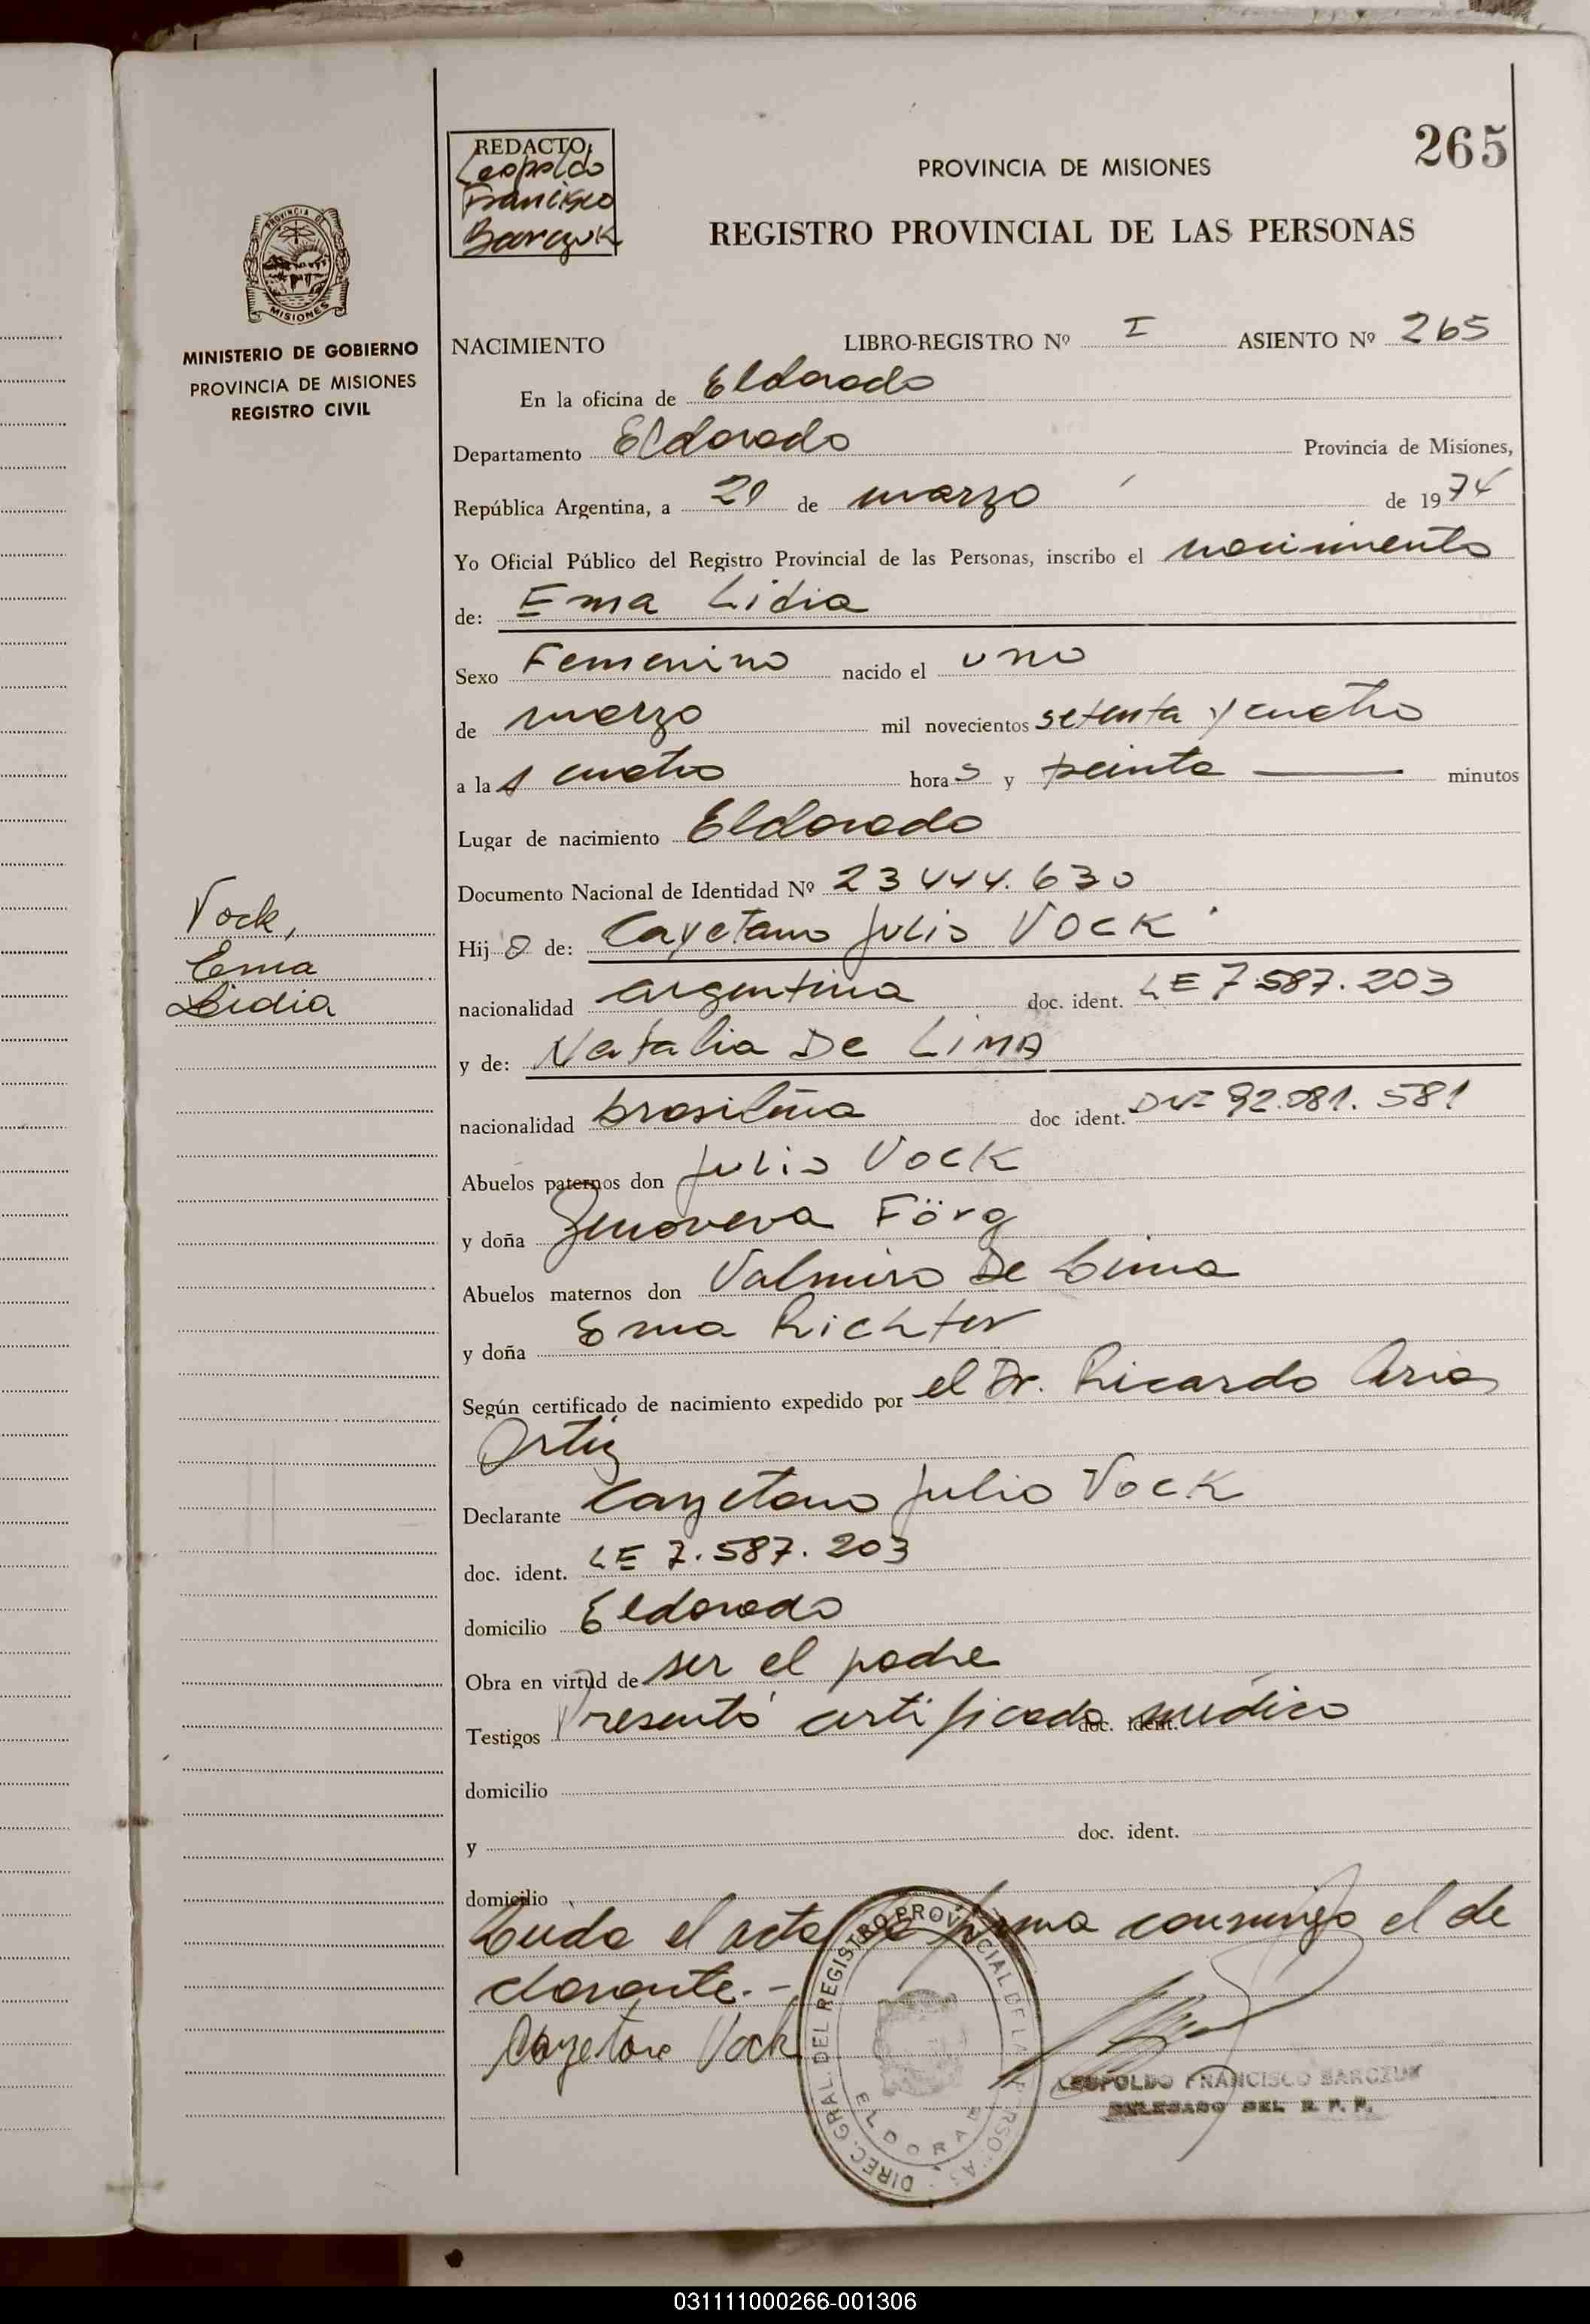 265
REDACTO,
Leopoldo
Francisco
Barczuk
PROVINCIA DE MISIONES
REGISTRO PROVINCIAL DE LAS PERSONAS
PROVINCIA DE
MISIONES
MINISTERIO DE GOBIERNO
PROVINCIA DE MISIONES
REGISTRO CIVIL
NACIMIENTO LIBRO-REGISTRO Nº I ASIENTO Nº 265
En la oficina de Eldorado
Departamento Eldorado Provincia de Misiones,
República Argentina, a de marzo de 1974
Yo Oficial Público del Registro Provincial de las Personas, inscribo el nacimiento
de: Ema Lidia
Sexo Femenino nacido el uno
de marzo mil novecientos setenta y cuatro
a las cuatro horas y treinta minutos
Lugar de nacimiento Eldorado
Documento Nacional de Identidad Nº 23444.630
Vock,
Ema
Lidia
Hija de: Cayetano Julio VOCK
nacionalidad argentina doc. ident. LE 7.587.203
y de: Natalia De LiMA
nacionalidad brasileña doc ident. 92.081.581
Abuelos paternos don Julio VOCK
y doña Genoveva Förg
Abuelos maternos don Valmiro De Lima
y doña Ema Richter
Según certificado de nacimiento expedido por el Dr. Ricardo Arias
Ortiz
Declarante Cayetano Julio Vock
doc. ident. LE 7.587.203
domicilio Eldorado
Obra en virtud de ser el padre
Testigos Presentó certificado médico doc. ident.
domicilio
y doc. ident.
domicilio
Leida el acta la firma conmigo el de
clarante.-
Cayetano Vock
DIREC. GRAL. DEL REGISTRO PROVINCIAL DE LAS PERSONAS
ELDORADO
LEOPOLDO FRANCISCO BARCZUK
DELEGADO DEL R. P. P.
031111000266-001306